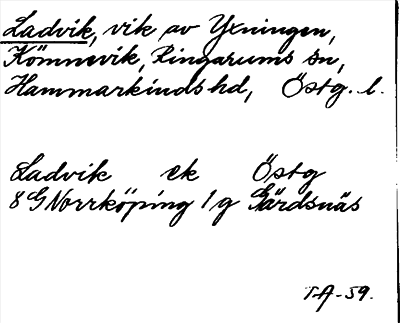 Ladvik, vik av Yxningen,
Kömnevik, Ringarums sn,
Hammarkinds hd, Östg. l.
Ladvik ek Östg
8G Norrköping 1g Gärdsnäs
TA-59.